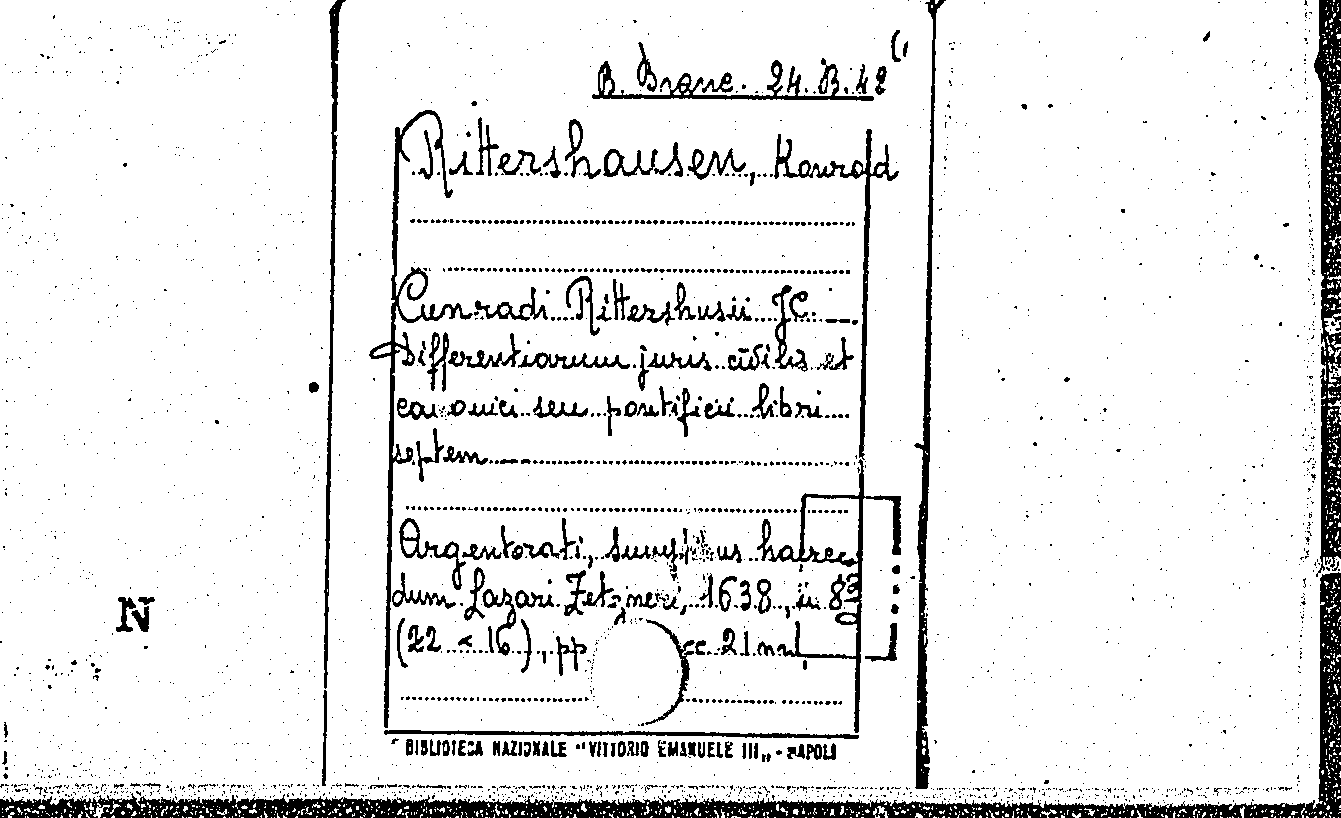 B. Branc. 24. B. 42 (1
Rittershausen, Konrad
Cunradi Rittershusii JC. ---.
Differentiarum juris civilis et
canonici seu pontificii libri
septem
Argentorati, sumptibus haere
dum Lazari Zetzneri, 1638, in 8º
(22 × 16), pp cc. 21 nnl.
N
BIBLIOTECA NAZIONALE "VITTORIO EMANUELE III„ - NAPOLI